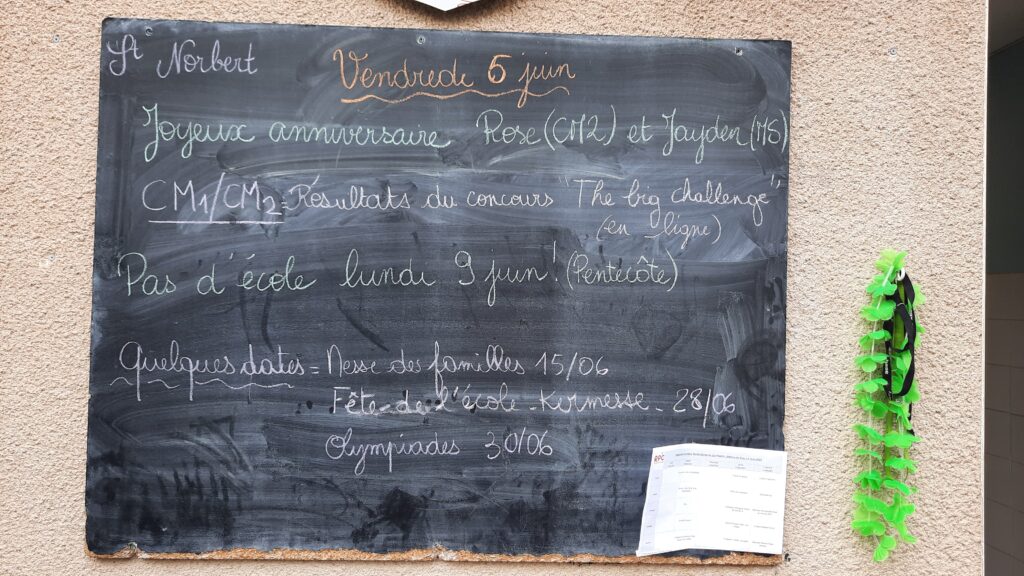 St Norbert
Vendredi 6 juin
Joyeux anniversaire Rose (CM2) et Jayden (MS)
CM1/CM2 = Résultats du concours "The big challenge"
(en ligne)
Pas d'école lundi 9 juin! (Pentecôte)
Quelques dates = Messe des familles 15/06
Fête de l'école - Kermesse - 28/06
Olympiades 30/06
RPC